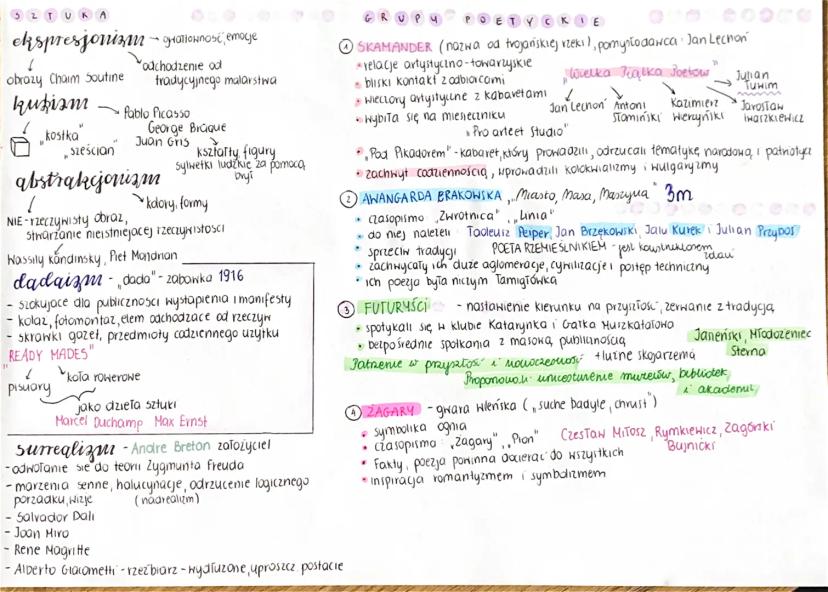 SZTUKA
ekspresjonizm → gwałtowność, emocje
obrazy Chaim Soutine
odchodzenie od
tradycyjnego malarstwa
kubizm → Pablo Picasso
George Braque
Juan Gris
"kostka"
"sześcian"
kształty, figury
sylwetki ludzkie za pomocą
brył
abstrakcjonizm
kolory, formy
NIE-rzeczywisty obraz,
stwarzanie nieistniejącej rzeczywistości
Wassily Kandinsky, Piet Mondrian
dadaizm - "dada" - zabawka 1916
- szokujące dla publiczności wystąpienia i manifesty
- kolaż, fotomontaż, elem odchodzące od rzeczyw
- skrawki gazet, przedmioty codziennego użytku
"READY MADES"
pisuary
koła rowerowe
jako dzieła sztuki
Marcel Duchamp Max Ernst
surrealizm - Andre Breton założyciel
- odwołanie się do teorii Zygmunta Freuda
- marzenia senne, halucynacje, odrzucenie logicznego
porządku, wizje (nadrealizm)
- Salvador Dali
- Joan Miro
- Rene Magritte
- Alberto Giacometti - rzeźbiarz - wydłużone, uproszcz postacie
GRUPY POETYCKIE
1 SKAMANDER (nazwa od trojańskiej rzeki), pomysłodawca Jan Lechoń
• relacje artystyczno-towarzyskie
• bliski kontakt z odbiorcami
• wieczory artystyczne z kabaretami
• wybiła się na miesięczniku
"Pro arte et Studio"
"Wielka Piątka Poetów"
Jan Lechoń
Antoni
Słonimski
Kazimierz
Wierzyński
Julian
Tuwim
Jarosław
Iwaszkiewicz
• "Pod Pikadorem" - kabaret, który prowadzili, odrzucali tematykę narodową i patriotycz
• zachwyt codziennością, wprowadzili kolokwializmy i wulgaryzmy
2 AWANGARDA KRAKOWSKA "Miasto, Masa, Maszyna" 3m
• czasopismo "Zwrotnica", "Linia"
• do niej należeli Tadeusz Peiper, Jan Brzękowski, Jalu Kurek i Julian Przyboś
• sprzeciw tradycji POETA RZEMIEŚLNIKIEM - jest konstruktorem
zdań
• zachwycały ich duże aglomeracje, cywilizacje i postęp techniczny
• ich poezja była niczym łamigłówka
3 FUTURYŚCI - nastawienie kierunku na przyszłość, zerwanie z tradycją
• spotykali się w klubie Katarynka i Gałka Muszkatołowa
• bezpośrednie spotkania z masową publicznością
Jasieński, Młodożeniec
Sterna
Patrzenie w przyszłość i nowoczesność + luźne skojarzenia
Proponowali unicestwienie muzeów, bibliotek,
i akademii
4 ŻAGARY - gwara wileńska ("suche badyle, chrust")
• symbolika ognia
• czasopismo "Żagary", "Pion"
Czesław Miłosz, Rymkiewicz, Zagórski
Bujnicki
• Fakty, poezja powinna docierać do wszystkich
• inspiracja romantyzmem i symbolizmem